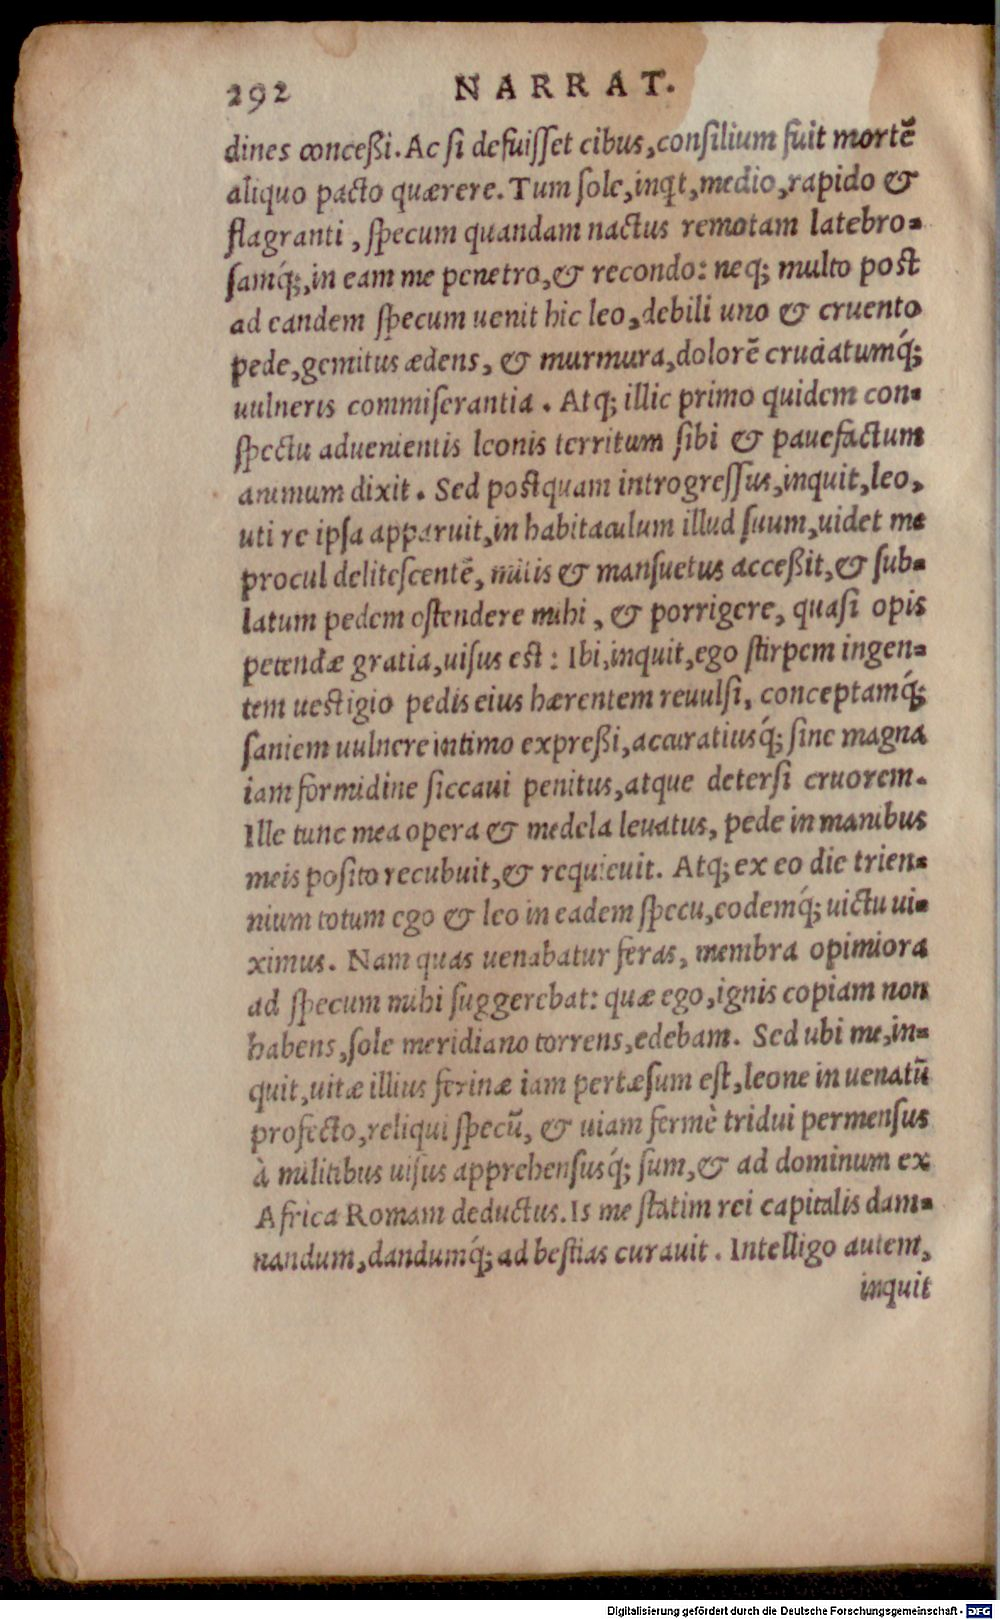 292 NARRAT.
dines conceßi. Ac si defuisset cibus, consilium fuit mortē
aliquo pacto quærere. Tum sole, inqt, medio, rapido &
flagranti, specum quandam nactus remotam latebro-
samq́;, in eam me penetro, & recondo: neq; multo post
ad eandem specum uenit hic leo, debili uno & cruento
pede, gemitus ædens, & murmura, dolorē cruciatumq́;
uulneris commiserantia. Atq; illic primo quidem con-
spectu aduenientis leonis territum sibi & pauefactum
animum dixit. Sed postquam introgressus, inquit, leo,
uti re ipsa apparuit, in habitaculum illud suum, uidet me
procul delitescentē, mitis & mansuetus acceßit, & sub-
latum pedem ostendere mihi, & porrigere, quasi opis
petendæ gratia, uisus est: Ibi, inquit, ego stirpem ingen-
tem uestigio pedis eius hærentem reuulsi, conceptamq́;
saniem uulnere intimo expreßi, accuratiusq́; sine magna
iam formidine siccaui penitus, atque detersi cruorem.
Ille tunc mea opera & medela leuatus, pede in manibus
meis posito recubuit, & requieuit. Atq; ex eo die trien-
nium totum ego & leo in eadem specu, eodemq́; uictu ui-
ximus. Nam quas uenabatur feras, membra opimiora
ad specum mihi suggerebat: quæ ego, ignis copiam non
habens, sole meridiano torrens, edebam. Sed ubi me, in-
quit, uitæ illius ferinæ iam pertæsum est, leone in uenatū
profecto, reliqui specū, & uiam fermè tridui permensus
à militibus uisus apprehensusq́; sum, & ad dominum ex
Africa Romam deductus. Is me statim rei capitalis dam-
nandum, dandumq́; ad bestias curauit. Intelligo autem,
inquit
Digitalisierung gefördert durch die Deutsche Forschungsgemeinschaft - DFG